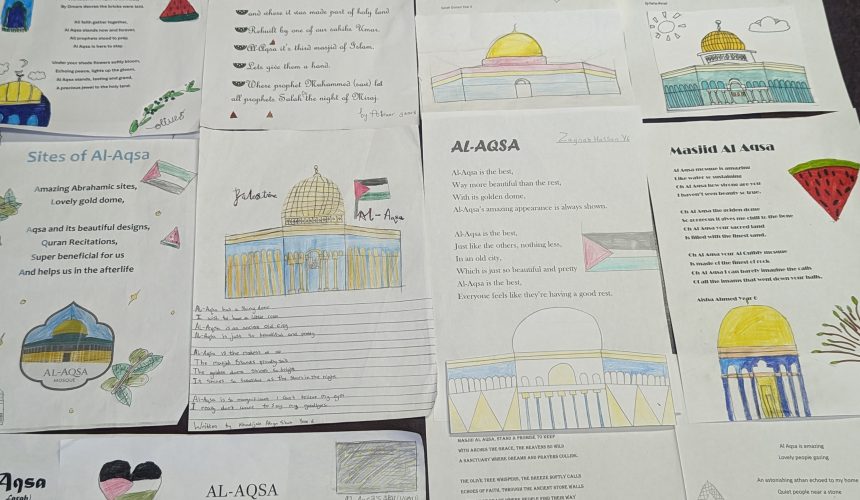 By Omars decree the bricks were laid.
All faith gather together,
Al Aqsa stands now and forever,
All prophets stood to pray,
Al Aqsa is here to stay.
Under your shade flowers softly bloom,
Echoing peace, lights up the gloom,
Al Aqsa stands, lasting and grand,
A precious jewel to the holy land.
olives
and where it was made part of holy land
Rebuilt by one of our sahiba Umar.
Al-Aqsa it's third masjid of Islam.
Lets give them a hand.
Where prophet Muhammed (saw) led
all prophets Salah the night of Miraj.
Sites of Al-Aqsa
Amazing Abrahamic sites,
Lovely gold dome,
Aqsa and its beautiful designs,
Quran Recitations,
Super beneficial for us
And helps us in the afterlife
AL-AQSA
MOSQUE
Palestine
AL-Aqsa
AL-Aqsa has a shiny dome
AL-Aqsa is an ancient old city
AL-Aqsa is just so beautiful and pretty
The golden dome shines so bright
It shines so beautiful as the stars in the night
AL-Aqsa is so magnificent I can't believe my eyes
I really don't want to say my goodbyes
AL-AQSA
Zaynab Hassan Y6
Al-Aqsa is the best,
Way more beautiful than the rest,
With its golden dome,
Al-Aqsa's amazing appearance is always shown.
Al-Aqsa is the best,
Just like the others, nothing less,
In an old city,
Which is just so beautiful and pretty
Al-Aqsa is the best,
Everyone feels like they're having a good rest.
Masjid Al Aqsa
Al Aqsa mosque is amazing
Like water so sustaining
Oh Al Aqsa how strong are you
I haven't seen beauty so true.
Oh Al Aqsa the golden dome
So gorgeous it gives me chill to the bone
Oh Al Aqsa your sacred land
Is filled with the finest sand.
Oh Al Aqsa your Al Qibly mosque
Is made of the finest of rock
Oh Al Aqsa I can barely imagine the calls
Of all the imams that went down your halls.
Aisha Ahmed Year 6
Aqsa
AL-AQSA
MASJID AL AQSA, STAND A PROMISE TO KEEP
WITH ARCHES THE GRACE, THE HEAVENS SO WILD
A SANCTUARY WHERE DREAMS AND PRAYERS COLLIDE.
THE OLIVE TREE WHISPERS, THE BREEZE SOFTLY CALLS
ECHOES OF FAITH, THROUGH THE ANCIENT STONE WALLS
Al Aqsa is amazing
Lovely people gazing
An astonishing athan echoed to my home
Quiet people near a stone